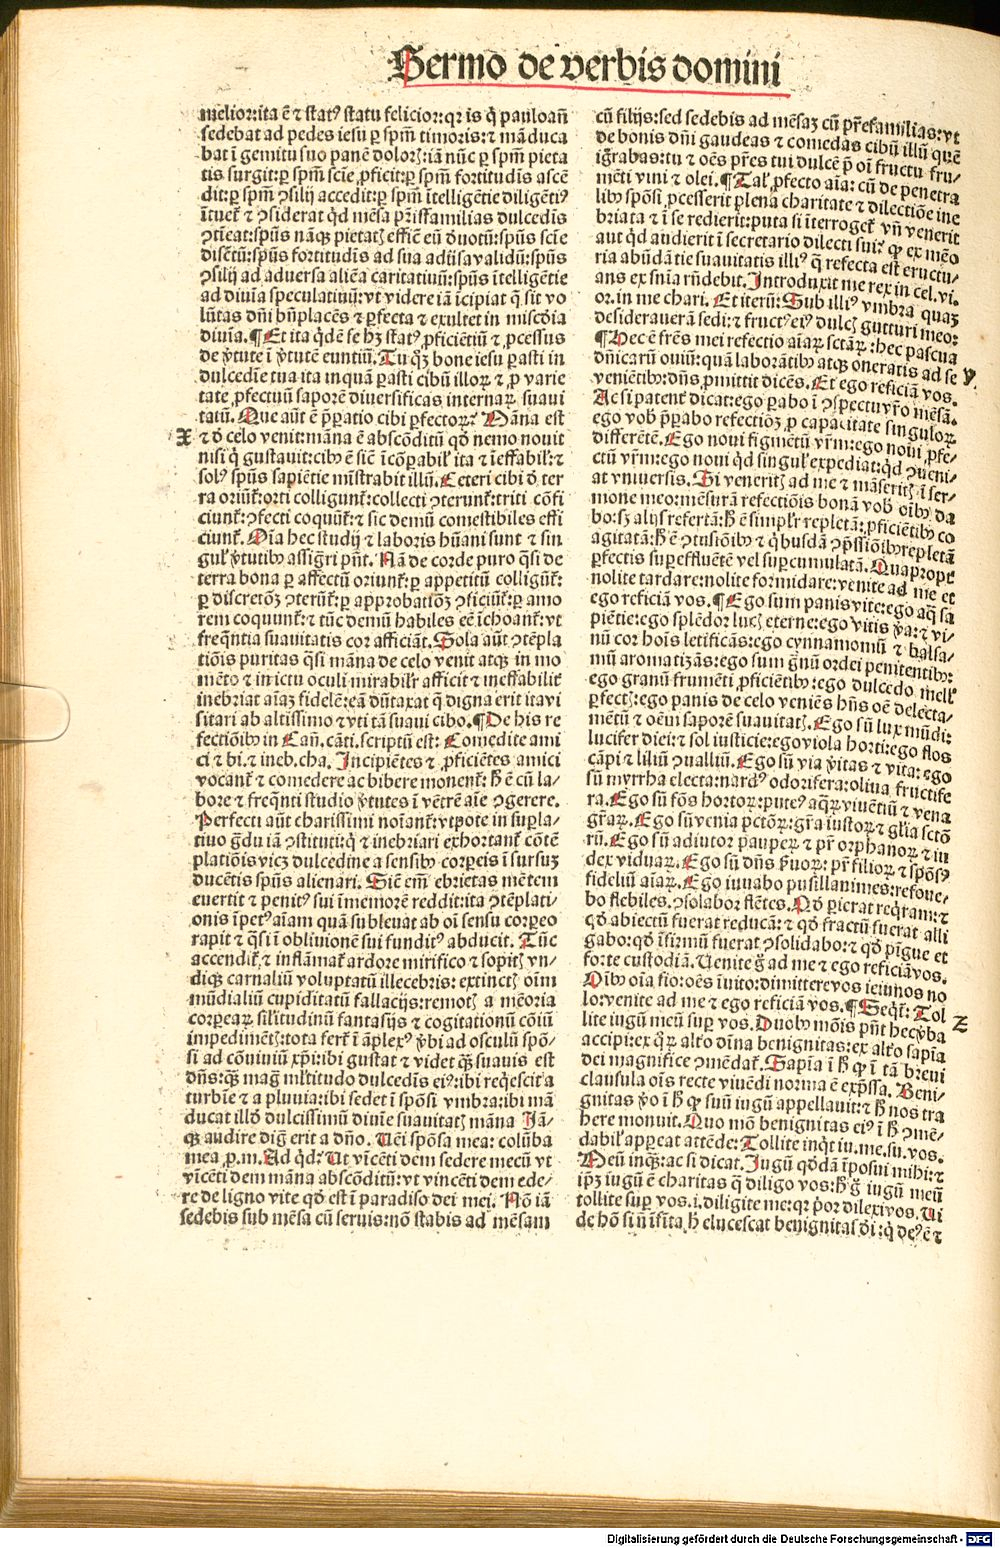 Sermo de verbis domini
melior:ita ē ⁊ statꝰ statu felicior:qꝛ is q̇ pauloañ
sedebat ad pedes iesu ꝑ spm̄ timoris:⁊ māduca
bat ī gemitu suo panē doloꝝ:iā nūc ꝑ spm̄ pieta
tis surgit:ꝑ spm̄ scīe ꝓficit:ꝑ spm̄ fortitudīs ascē
dit:ꝑ spm̄ ꝯsilij accedit:ꝑ spm̄ ītelligētie diligētiꝰ
ītuet᷑ ⁊ ꝯsiderat qd̄ mēsa pr̄iffamilias dulcedīs
ꝯtīeat:spūs nāqꝫ pietatꝭ efficē eū d̓uotū:spūs scīe
discētū:spūs fortitudīs ad sua adijsavalidū:spūs
ꝯsilij ad aduersa aliēa caritatiuū:spūs ītelligētie
ad diuīa speculatiuū:vt videre iā īcipiat q̄ sit vo
lūtas dn̄i bn̄placēs ⁊ ꝑfecta ⁊ exultet in mīscdīa
diuīa.¶Et ita qd̄ē se hꝫ statꝰ ꝓficiētiū ⁊ ꝓcessus
de v̓tute ī v̓tutē euntiū.Tu qꝫ bone iesu ꝑasti in
dulcedīe tua ita inquā ꝑasti cibū illoꝝ ⁊ ꝓ varie
tate ꝓfectuū saporē diuersificas internaꝝ suaui
tatū.Que aūt ē p̄ꝑatio cibi ꝑfectoꝝ? Māna est
X
⁊ d̓ celo venit:māna ē abscōditū qd̓ nemo nouit
nisi q̇ gustauit:cibꝰ ē siē īcōꝑabił ita ⁊ īeffabił:⁊
solꝰ spūs sapiētie mīstrabit illū.Ceteri cibi d̓ ter
ra oriūt᷑:orti colligunt᷑:collecti ꝯterunt᷑:triti cōfi
ciunt᷑:ꝯfecti coquūt᷑:⁊ sic demū comestibiles effi
ciunt᷑.Oīa hec studij ⁊ laboris hūani sunt ⁊ sin
guł v̓tutibꝰ assigr̄i pn̄t.Nā de corde puro q̄si de
terra bona ꝑ affectū oriunt᷑:ꝑ appetitū colligūt᷑:
ꝑ discretōꝫ ꝯterūt᷑:ꝑ approbatiōꝫ ꝯficiūt᷑:ꝑ amo
rem coquunt᷑:⁊ tūc demū habiles eē īchoant᷑:vt
freq̄ntia suauitatis cor afficiāt.Sola aūt ꝯtēpla
tiōis puritas q̄si māna de celo venit atqꝫ in mo
mēto ⁊ in ictu oculi mirabilr̄ afficit ⁊ ineffabilit᷑
inebriat aīaꝫ fidelē:eā dūtaxat q̄ digna erit ita vi
sitari ab altissimo ⁊ vti tā suaui cibo.¶De his re
fectiōibꝰ in Cañ.cāti.scriptū est: Comedite ami
ci ⁊ bi.⁊ ineb.cha.Incipiētes ⁊ ꝓficiētes amici
vocant᷑ ⁊ comedere ac bibere monent᷑: h̄ ē cū la-
bore ⁊ freq̄nti studio v̓tutes ī vētrē aīe ꝯgerere.
Perfecti aūt charissimi noīant᷑:vtpote in suꝑla-
tiuo ḡdu iā ꝯstituti:q̇ ⁊ inebriari exhortant᷑ cōtē
platiōis vicꝫ dulcedine a sensibꝰ corꝑeis ī sursuꝫ
ducētis spūs alienari.Siē em̄ ebrietas mētem
euertit ⁊ penitꝰ sui īmemorē reddit:ita ꝯtēplati-
onis īpetꝰ aīam quā subleuat ab oī sensu corꝑeo
rapit ⁊ q̄si ī obliuionē sui funditꝰ abducit.Tūc
accendit᷑ ⁊ inflāmat᷑ ardore mirifico ⁊ sopitꝭ vn-
diqꝫ carnaliū voluptatū illecebris:extinctꝭ oīm
mūdialiū cupiditatū fallacijs:remotꝭ a mēoria
corꝑeaꝝ silitudinū fantasijs ⁊ cogitationū cōiū
impedimētꝭ:tota fert᷑ ī āplexꝰ v̓bi ad osculū spō-
si ad cōuiuiū xp̄i:ibi gustat ⁊ videt qꝫ suauis est
dn̄s:qꝫ mag̃ ml̄titudo dulcedīs eiꝰ:ibi reqescit a
turbīe ⁊ a pluuia:ibi sedet ī spōsi vmbra:ibi mā
ducat illd̓ dulcissimū diuīe suauitatꝭ māna Iā-
qꝫ audire dig̃ erit a dn̄o.Uēi spōsa mea: colūba
mea ꝓ.m.Ad qd̓? Ut vīcēti dem sedere mecū vt
vīcēti dem māna abscōditū:vt vincēti dem ede-
re de ligno vite qd̓ est ī paradiso dei mei.Nō iā
sedebis sub mēsa cū seruis:nō stabis ad mēsam
cū filijs:sed sedebis ad mēsaꝫ cū pr̄efamilias:vt
de bonis dn̄i gaudeas ⁊ comedas cibū illū quē
igr̄abas:tu ⁊ oēs pr̄es tui dulcē p̄ oī fructu fru-
mēti vini ⁊ olei.¶Tał ꝓfecto aīa: cū de penetra
libꝰ spōsi ꝓcesserit plena charitate ⁊ dilectiōe ine
briata ⁊ ī se redierit:puta si īterroget᷑ vn̄ venerit
aut qd̓ audierit ī secretario dilecti sui? qꝫ ex mēo
ria abūdātie suauitatis illiꝰ q̄ refecta est eructu-
ans ex sn̄ia rn̄debit.Introduxit me rex in cel.vi.
or.in me chari. Et iterū:Sub illiꝰ vmbra quaꝫ
desiderauerā sedi:⁊ fructꝰ eiꝰ dulcꝭ gutturi meo:
¶Hec ē frēs mei refectio aīaꝝ sctāꝝ:hec pascua
dn̄icarū ouiū:quā laborātibꝰ atqꝫ oneratis ad se
y.
veniētibꝰ:dn̄s ꝓmittit dicēs. Et ego reficiā vos.
Ac si patent᷑ dicat:ego ꝑabo ī ꝯspectu vr̄o mēsā.
ego vob̄ p̄ꝑabo refectiōꝫ ꝓ capacitate singuloꝝ
differētē.Ego noui figmētū vr̄m:ego noui ꝓfe-
ctū vr̄m:ego noui qd̓ singuł expediat:qd̓ ꝯueni-
at vniuersis.Si veneritꝭ ad me ⁊ māseritꝭ ī ser-
mone meo:mēsurā refectiōis bonā vob̄ oībꝰ da
bo:sꝫ alijs refertā:h̄ ē simplr̄ repletā:ꝓficiētibꝰ co
agitatā:h̄ ē ꝯtusiōibꝰ ⁊ q̇busdā ꝯp̄ssiōibꝰ repletā
ꝑfectis suꝑeffluētē vel suꝑcumulatā.Quapropt᷑
nolite tardare:nolite formidare:venite ad me et
ego reficiā vos.¶Ego sum panis vite:ego aq̄ sa
piētie:ego splēdor lucꝭ eterne:ego vitis v̓a:⁊ vi-
nū cor hoīs letificās:ego cynnamomū ⁊ balsa-
mū aromatizās:ego sum g̓nū ordei penitentibꝰ:
ego granū frumēti ꝓficiētibꝰ:ego dulcedo mell᷑
ꝑfectꝭ:ego panis de celo veniēs hn̄s oē delecta-
mētū ⁊ oēm saporē suauitatꝭ.Ego sū lux mūdi:
lucifer diei:⁊ sol iusticie:ego viola horti:ego flos
cāpi ⁊ liliū ꝯualliū.Ego sū via v̓itas ⁊ vita:ego
sū myrrha electa:nardꝰ odorifera:oliua fructife
ra.Ego sū fōs hortoꝝ:puteꝰ aq̄ꝝ viuētiū ⁊ vena
gr̄aꝝ.Ego sū venia pctōꝝ:gr̄a iustoꝝ ⁊ gl̄ia sctō
rū.Ego sū adiutor pauꝑeꝝ ⁊ pr̄ orphanoꝝ ⁊ iu
dex viduaꝝ.Ego sū dn̄s s̓uoꝝ: pr̄ filioꝝ ⁊ spōsꝰ
fideliū aīaꝝ.Ego iuuabo pusillanimes:refoue-
bo flebiles.ꝯsolabor flētes.Qd̓ ꝑierat reqr̄am:⁊
qd̓ abiectū fuerat reducā:⁊ qd̓ fractū fuerat alli
gabo:qd̓ īfirmū fuerat ꝯsolidabo:⁊ qd̓ pīgue et
forte custodiā.Uenite g̓ ad me ⁊ ego reficiā vos.
Oībꝰ oīa fio:oēs īuito:dimittere vos ieiunos no
lo:venite ad me ⁊ ego reficiā vos.¶Seqt᷑: Tol
Z
lite iugū meū suꝑ vos.Duobꝰ mōis pn̄t hec v̓ba
accipi:ex q̄ꝝ alto dīna benignitas:ex alto sapīa
dei magnifice ꝯmēdat᷑.Sapīa ī h̄ qꝫ ī tā breui
clausula oīs recte viuēdi norma ē exp̄ssa.Beni-
gnitas v̓o ī h̄ qꝫ suū iugū appellauit:⁊ h̄ nos tra
here monuit.Quo mō benignitas eiꝰ ī h̄ ꝯmē-
dabił appeat attēde:Tollite inqt iu.me.su.vos.
Meū inqꝫ:ac si dicat.Iugū qd̓dā īposui mihi:⁊
ipꝫ iugū ē charitas q̄ diligo vos:h̄ g̓ iugū meū
tollite suꝑ vos.i.diligite me:qꝛ p̓or dilexi vos.Ui
de hō si n̄ īsita h̄ elucescat benignitas dī:q̇ deꝰ ē ⁊
Digitalisierung gefördert durch die Deutsche Forschungsgemeinschaft - DFG